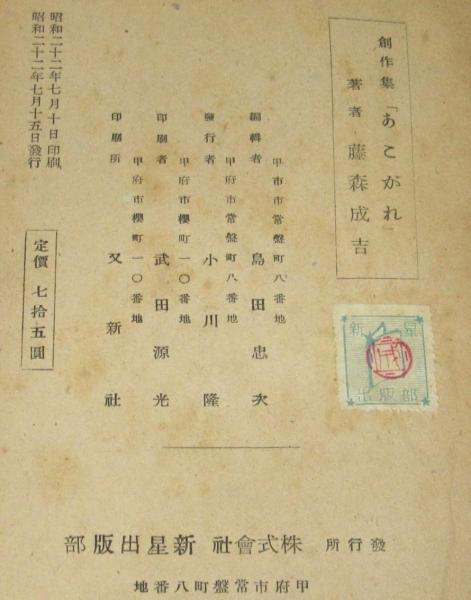 創作集「あこがれ」
著者 藤森成吉
甲市市常盤町八番地
編輯者 島田忠次
甲府市常盤町八番地
發行者 小川隆
甲府市櫻町一〇番地
印刷者 武田源光
甲府市櫻町一〇番地
印刷所 又新社
昭和二十二年七月十日印刷
昭和二十二年七月十五日發行
定價 七拾五圓
新星
出版部
發行所 株式會社 新星出版部
甲府市常盤町八番地